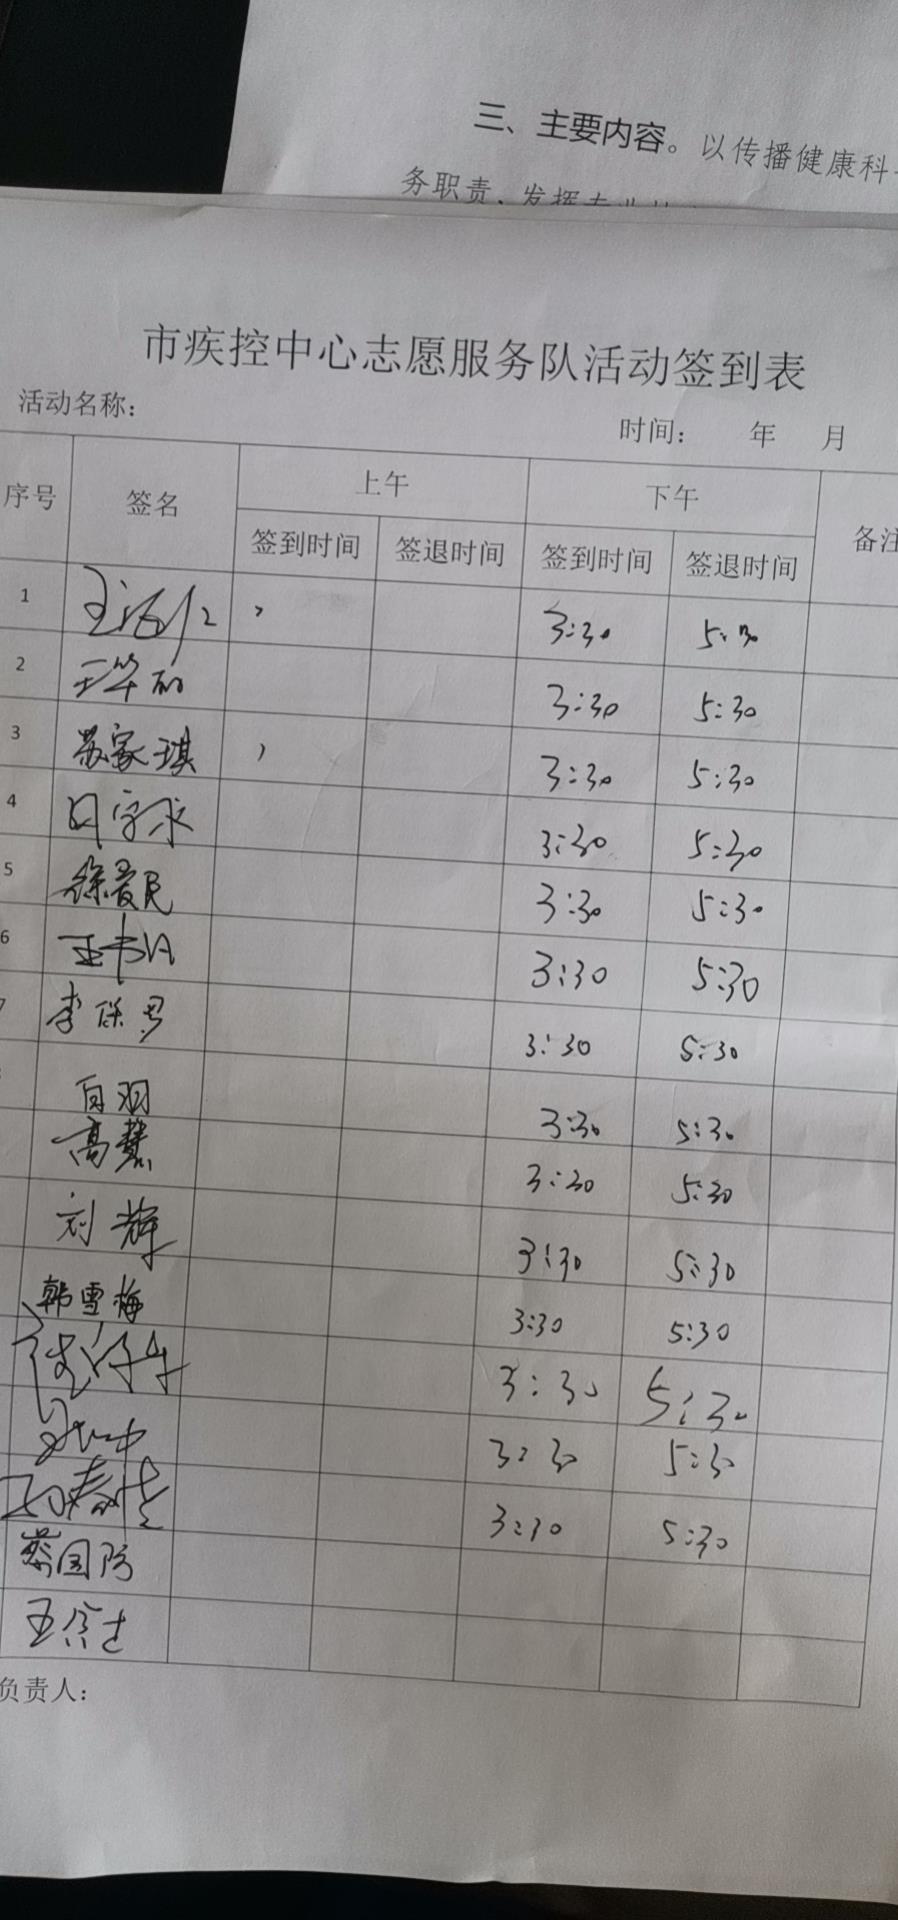 三、主要内容。以传播健康科
务职责，发挥专业
市疾控中心志愿服务队活动签到表
活动名称：
时间： 年 月
序号 签名 上午 下午 备注
签到时间 签退时间 签到时间 签退时间
1 3:30 5:30
2 3:30 5:30
3 苏家琪 3:30 5:30
4 3:30 5:30
5 徐爱民 3:30 5:30
6 3:30 5:30
7 李保勇 3:30 5:30
白羽 3:30 5:30
高慧 3:30 5:30
刘辉 3:30 5:30
韩雪梅 3:30 5:30
3:30 5:30
3:30 5:30
3:30 5:30
蔡国防
负责人：